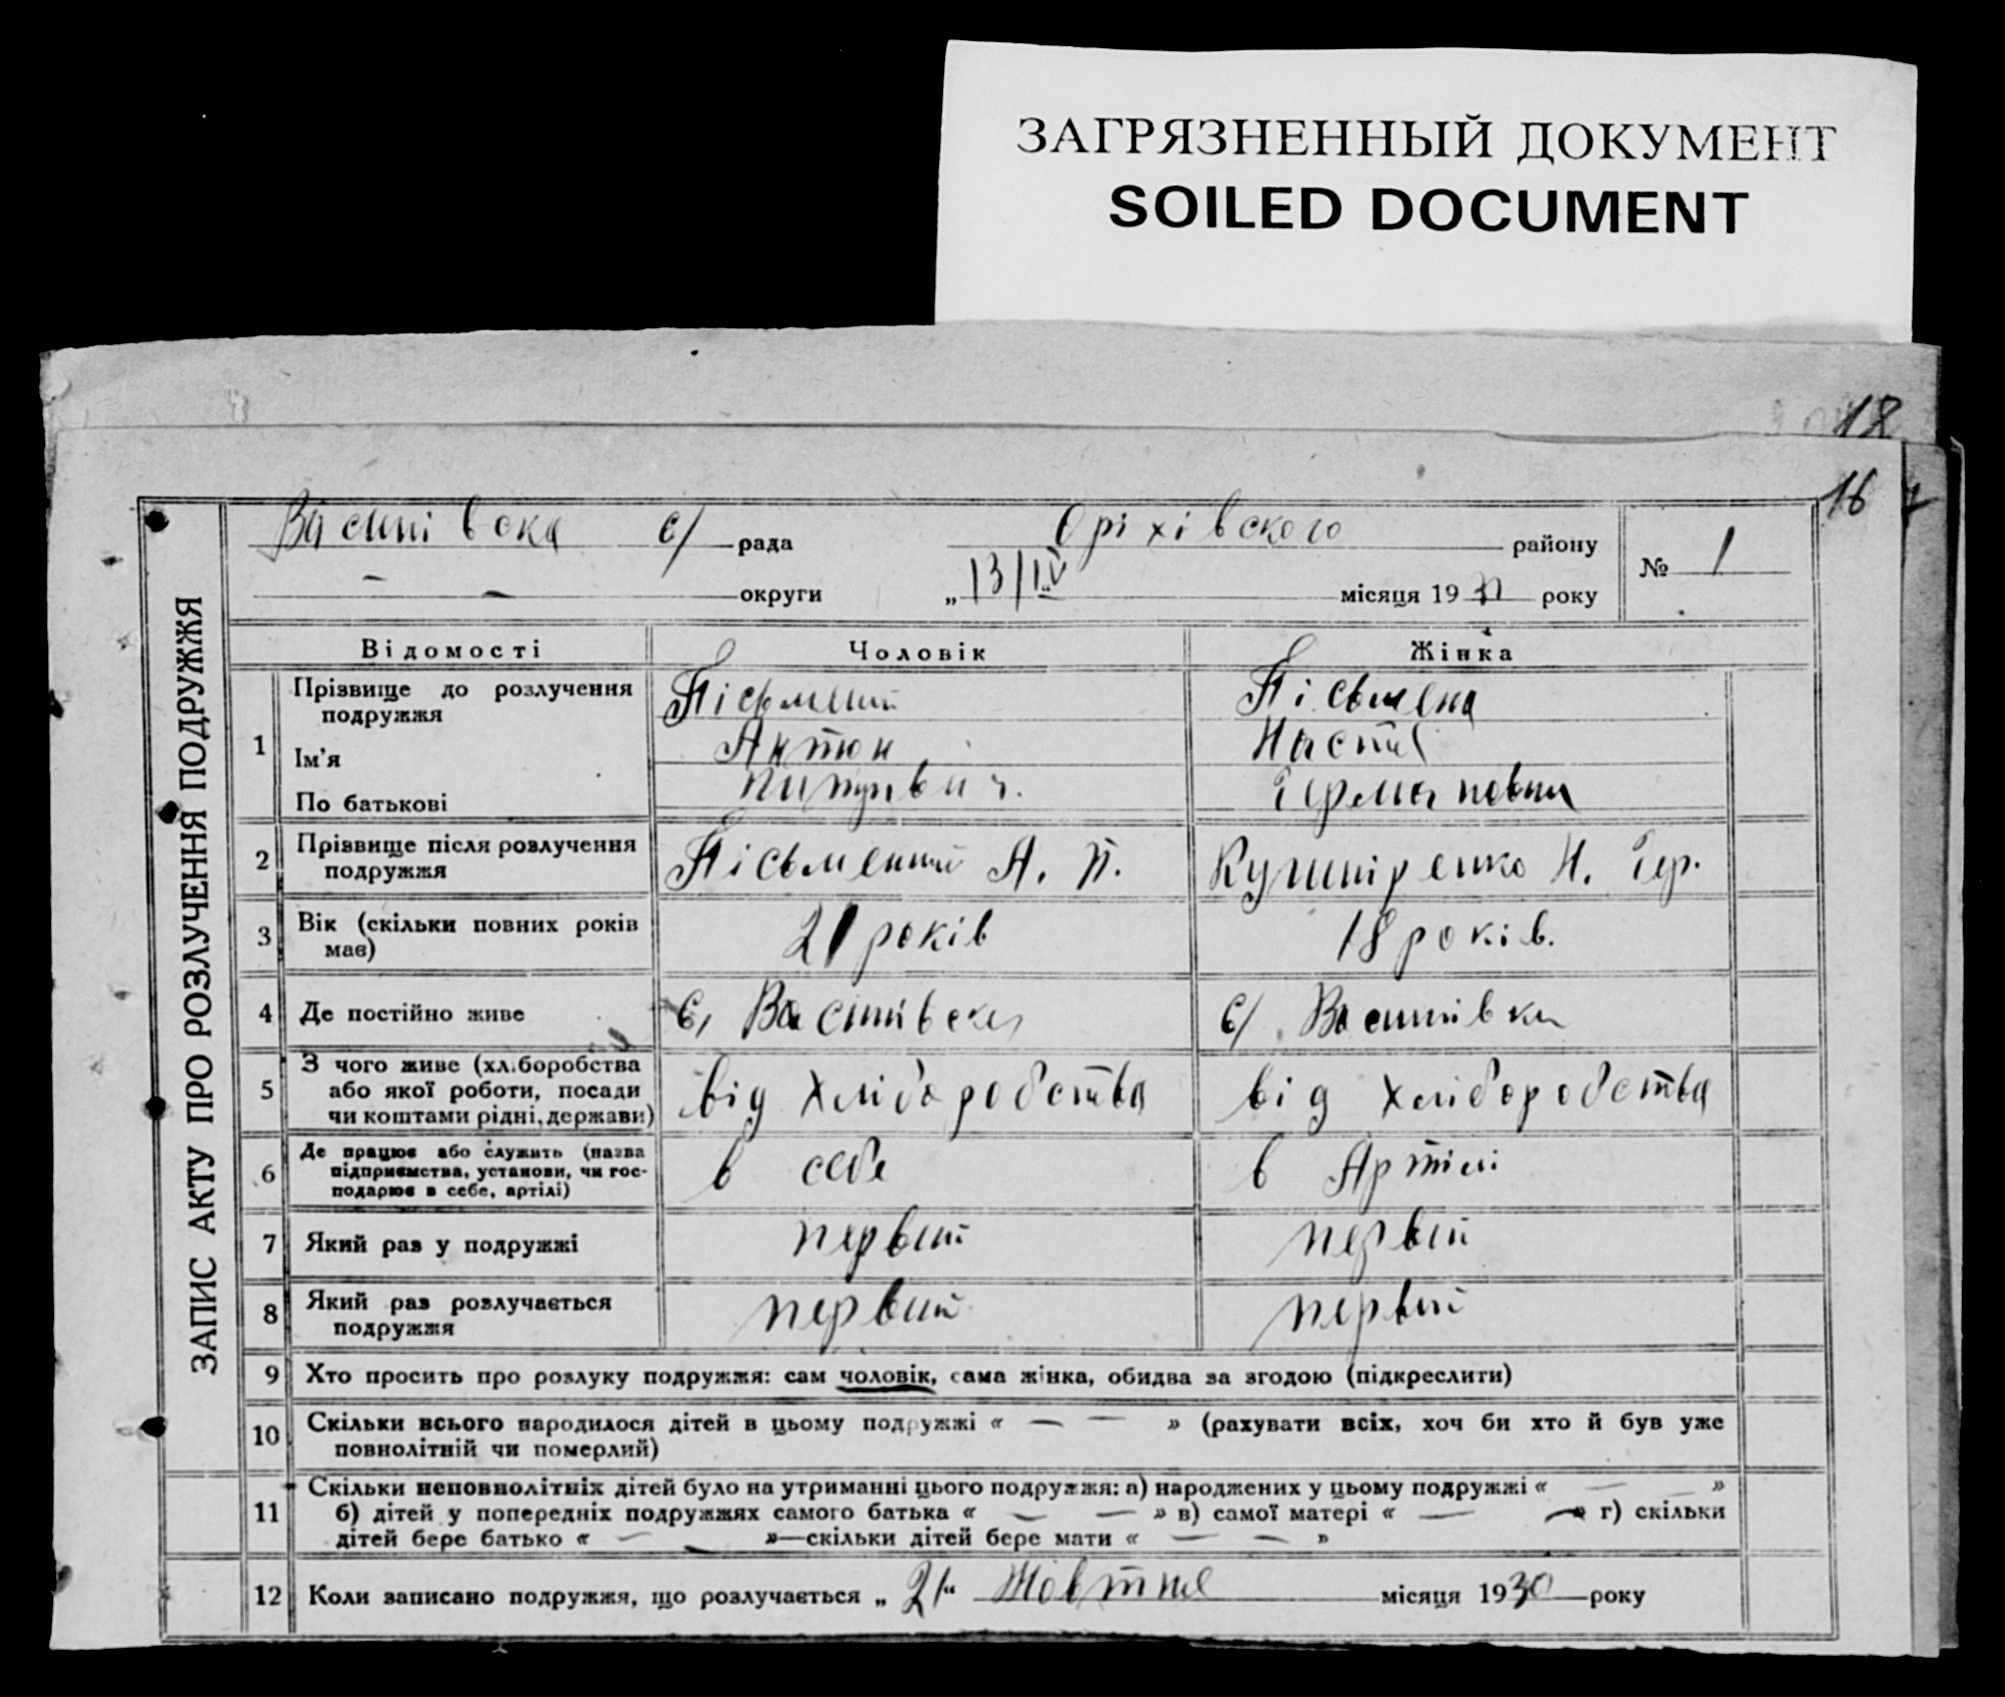 ЗАГРЯЗНЕННЫЙ ДОКУМЕНТ
SOILED DOCUMENT
18
16
ЗАПИС АКТУ ПРО РОЗЛУЧЕННЯ ПОДРУЖЖЯ
с/ рада Оріхівського району № 1
округи „13/IV місяця 1931 року
Відомості Чоловік Жінка
1 Прізвище до розлучення подружжя Пісьмений Пісьмена
Ім'я Антон Настя
По батькові Германовна
2 Прізвище після розлучення подружжя Пісьмений А. П. Кушніренко Н. Гер.
3 Вік (скільки повних років має) 21 років 18 років.
4 Де постійно живе с, с/
5 З чого живе (хліборобства або якої роботи, посади чи коштами рідні, держави) від хліборобства від хліборобства
6 Де працює або служить (назва підприємства, установи, чи господарює в себе, артілі) в себе в Артілі
7 Який раз у подружжі первий первий
8 Який раз розлучається подружжя первий первий
9 Хто просить про розлуку подружжя: сам чоловік, сама жінка, обидва за згодою (підкреслити)
10 Скільки всього народилося дітей в цьому подружжі « — — » (рахувати всіх, хоч би хто й був уже
повнолітній чи померлий)
11 Скільки неповнолітніх дітей було на утриманні цього подружжя: а) народжених у цьому подружжі « — — »
б) дітей у попередніх подружжях самого батька « — — » в) самої матері « — — » г) скільки
дітей бере батько « — — »—скільки дітей бере мати « — — »
12 Коли записано подружжя, що розлучається „ 21“ Жовтня місяця 1930 року